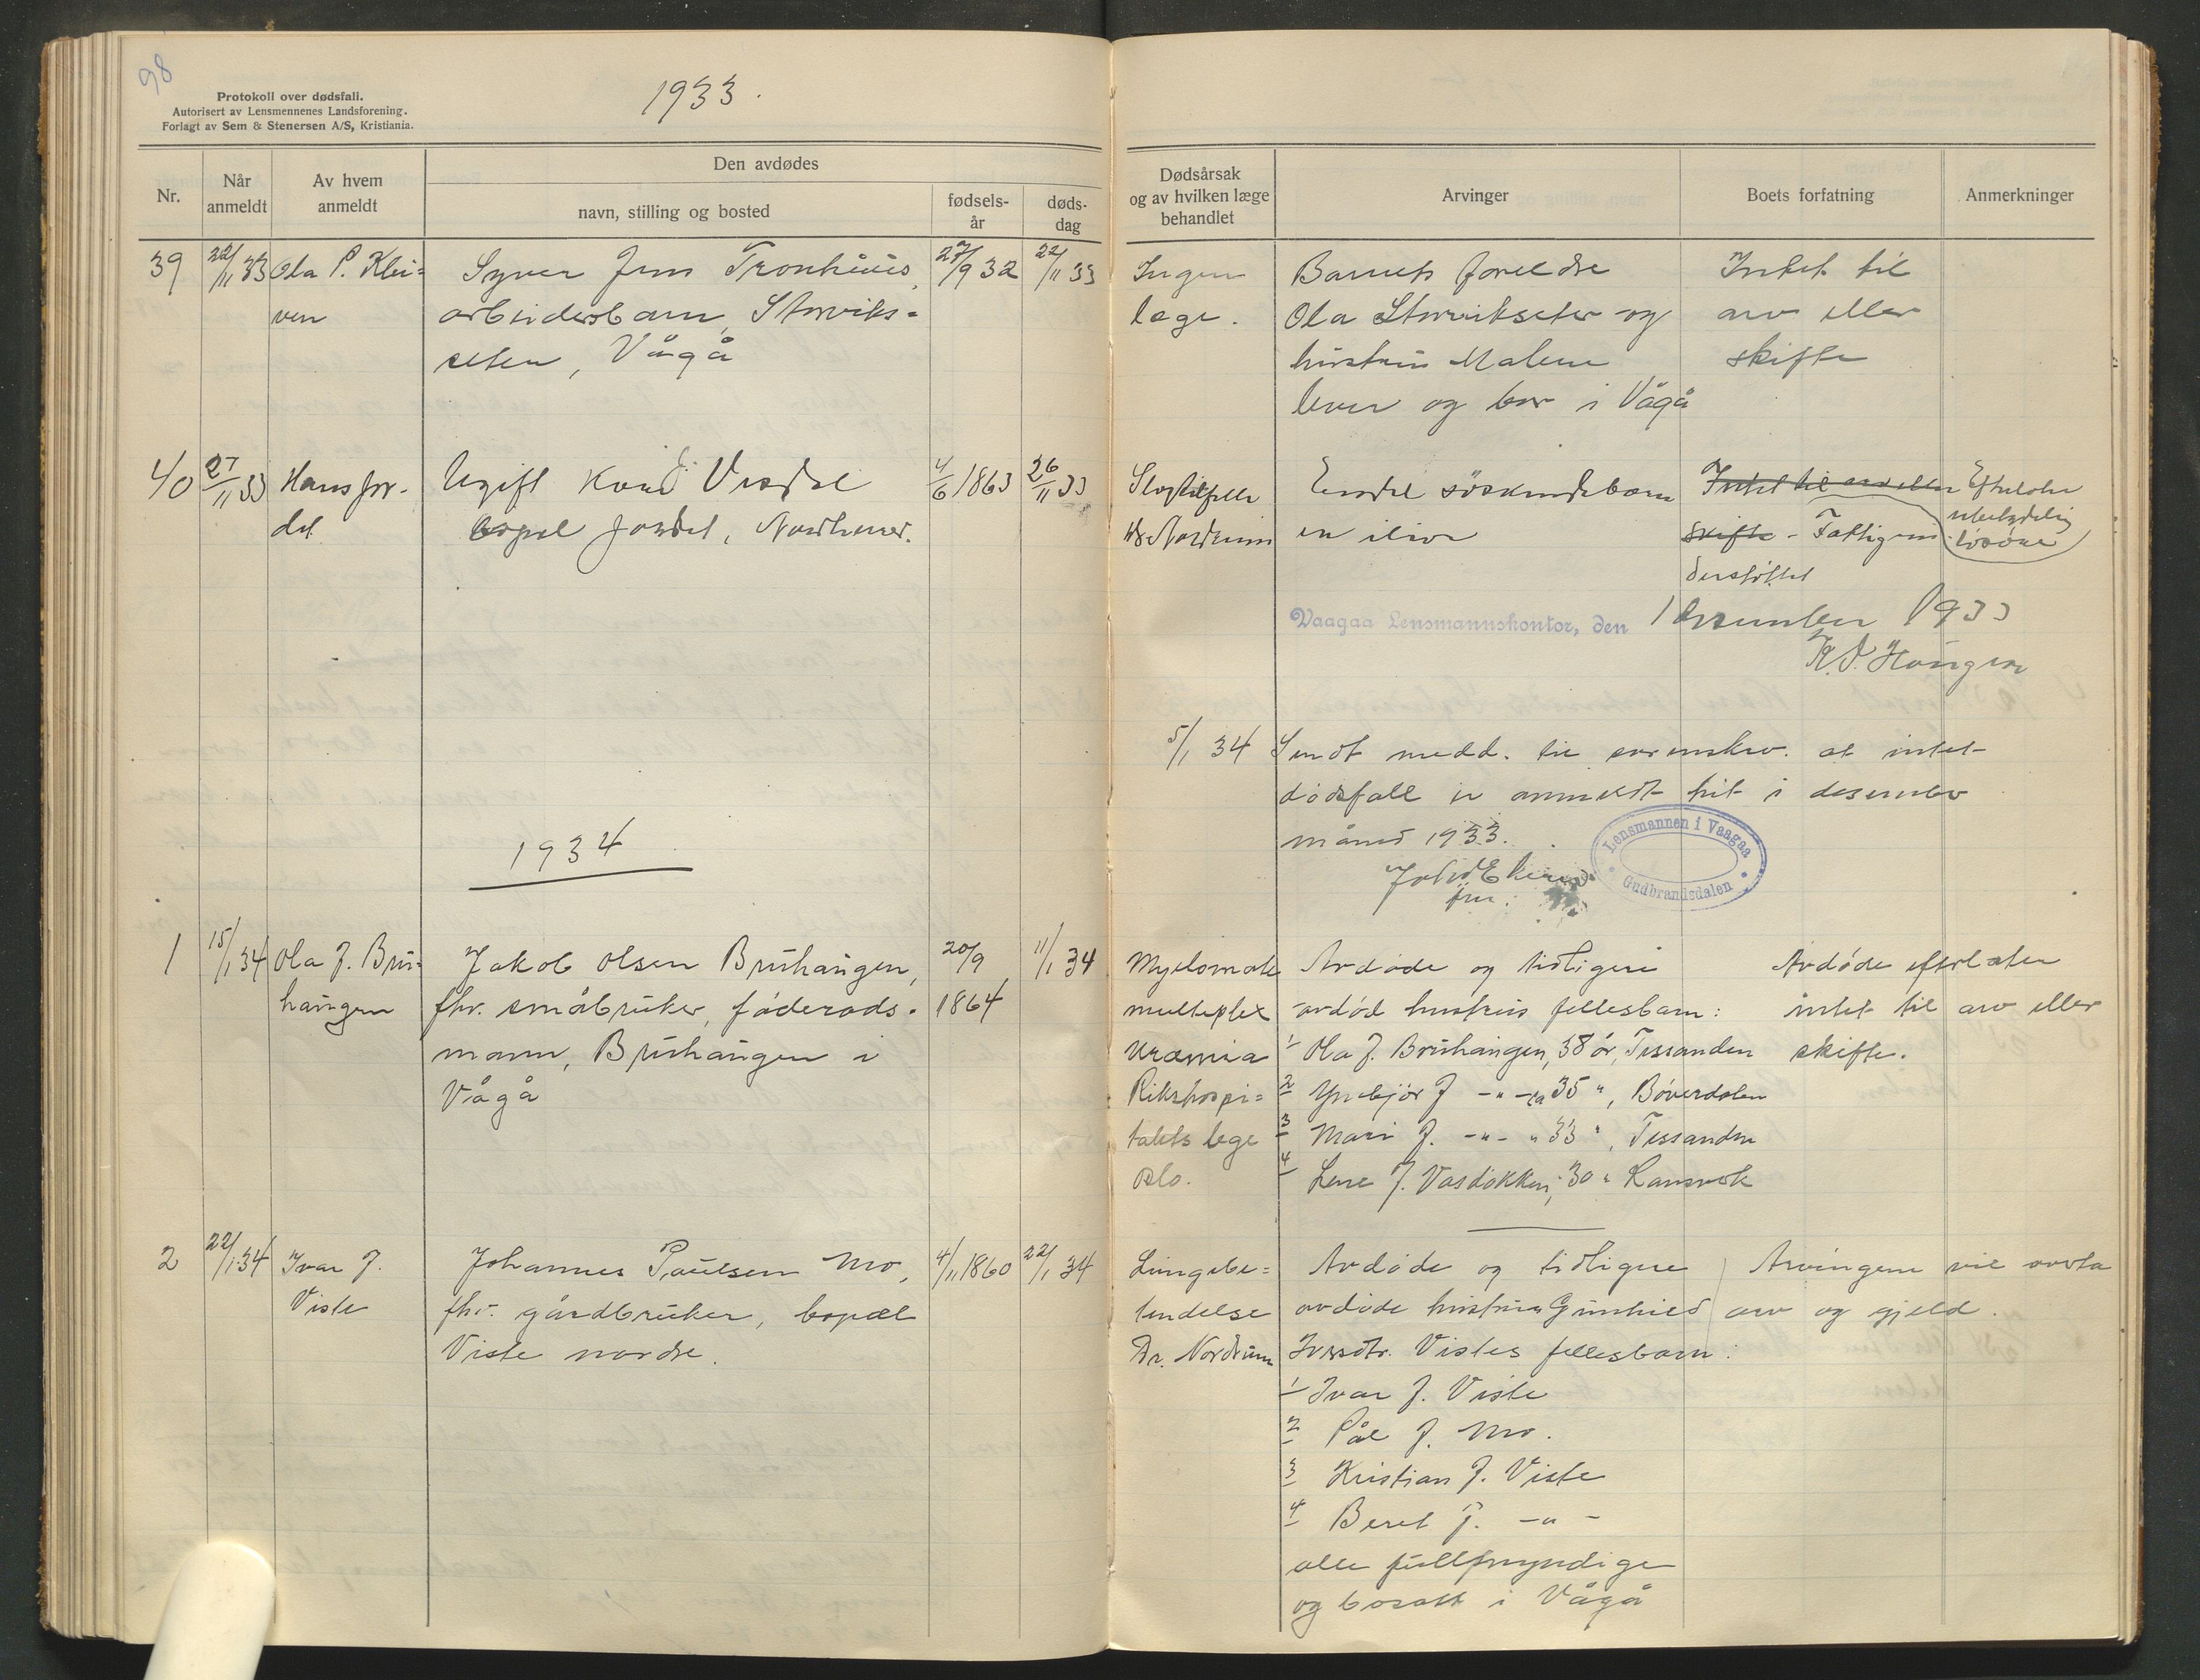 98
Protokoll over dødsfall.
Autorisert av Lensmennenes Landsforening.
Forlagt av Sem & Stenersen A/S, Kristiania.
1933.
Nr.
Når anmeldt
Av hvem anmeldt
Den avdødes
navn, stilling og bosted
fødsels-år
døds-dag
Dødsårsak og av hvilken læge behandlet
Arvinger
Boets forfatning
Anmerkninger
39
22/11 33
Ola P. Klei-
ven
Syver Jens Tronhuus,
arbeidersbarn, Storviks-
seter, Vågå
27/9 32
22/11 33
Ingen
læge.
Barnets foreldre
Ola Storvikseter og
hustru Malene
lever og bor i Vågå
Intet til
arv eller
skifte
40
27/11 33
Hans Jor-
det
Ugift
bopel Jordet, Nordherad.
4/6 1863
26/11 33
Slagtilfelle
Dr. Nordrum
Endel söskendebarn
er ilive
Intet til arv eller
skifte - Fattigun-
derstøttet
Efterlater
ubetydelig
lösöre
Vaagaa Lensmannskontor, den 1 desember 1933
K. S. Haugen
5/1 34 Sendt medd. til sorenskr. at intet
dödsfall er anmeldt hit i desember
måned 1933.
fm.
Lensmannen i Vaagaa
Gudbrandsdalen
1934
1
15/1 34
Ola J. Bru-
haugen
Jakob Olsen Bruhaugen,
fhv. småbruker, föderåds-
mann, Bruhaugen i
Vågå
20/9
1864
11/1 34
Myelomato
multeplex
Uræmia
Rikshospi-
talets lege
Oslo.
Avdöde og tidligere
avdöd hustrus fellesbarn:
1 Ola J. Bruhaugen, 38 år, Tessanden
2 Ynbjör J -"- ca 35 ", Böverdalen
3 Mari J. -"- " 33 ", Tessanden
4 Lene J. Vasdokken, 30 "
Avdöde efterlater
intet til arv eller
skifte.
2
22/1 34
Ivar J.
Viste
Johannes Paulsen Mo,
fhv. gårdbruker, bopæl
Viste nordre.
4/11 1860
22/1 34
Lungebe-
tendelse
Dr. Nordrum
Avdöde og tidligere
avdöde hustru Gunhild
Ivarsdtr. Vistes fellesbarn:
1 Ivar J. Viste
2 Pål J. Mo.
3 Kristian J. Viste
4 Beret J. -"-
alle fullmyndige
og bosatt i Vågå
Arvingene vil overta
arv og gjeld.